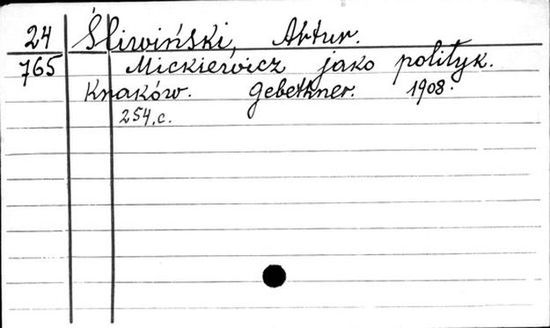 24 Śliwiński, Artur.
765 Mickiewicz jako polityk.
Kraków. Gebethner. 1908.
254.c.